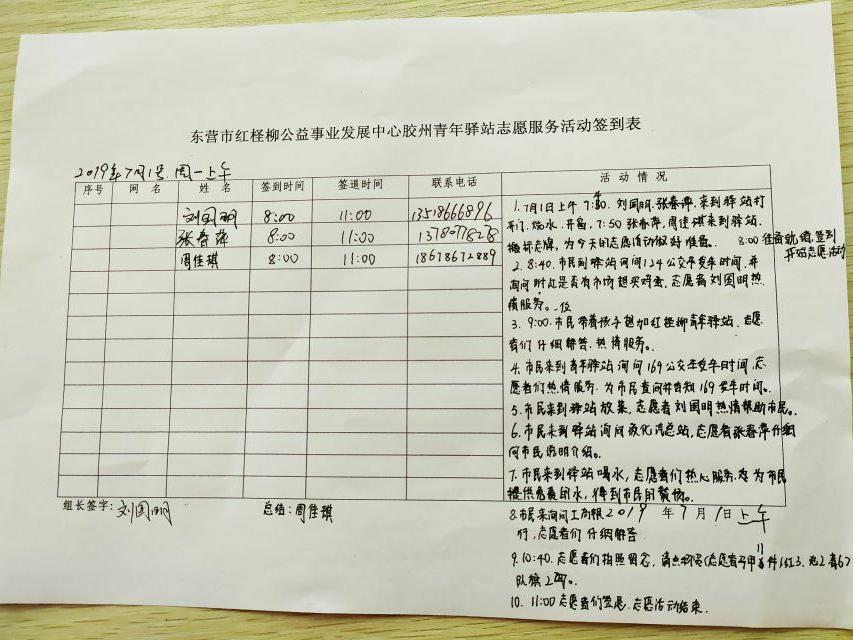 东营市红柽柳公益事业发展中心胶州青年驿站志愿服务活动签到表
2019年7月1号 周一上午
序号 网 名 姓 名 签到时间 签退时间 联系电话 活 动 情 况
刘国明 8:00 11:00 13518666896
张春萍 8:00 11:00
周佳琪 8:00 11:00 18678672889
1. 7月1日上午7:30. 刘国明.张春萍,来到驿站打
开门,烧水,开窗,7:50张春萍,周佳琪来到驿站.
为今天的志愿活动做好准备。 8:00准备就绪.签到
开始志愿活动
2. 8:40.市民到驿站询问124公交车发车时间,并
询问附近是否有市场想买鸡蛋,志愿者刘国明热
情服务。一位
3. 9:00.市民带着孩子想加红柽柳青年驿站.志愿
者们仔细解答.热情服务。
4.市民来到青年驿站询问169公交车发车时间,志
愿者们热情服务.为市民查询并告知169发车时间。
5.市民来到驿站,志愿者刘国明热情帮助市民。
6.市民来到驿站询问汽总站,志愿者张春萍仔细
向市民说明介绍。
7.市民来到驿站喝水,志愿者们热心服务.为市民
提供免费的水,得到市民的赞扬。
组长签字:刘国明 总结:周佳琪 2019 年 7 月 1 日 上午
8.市民来询问工商银
行,志愿者们仔细解答
9. 10:40.志愿者们拍照留念,清点物资(志愿者马甲11件
队旗2
10. 11:00志愿者们签退.志愿活动结束.